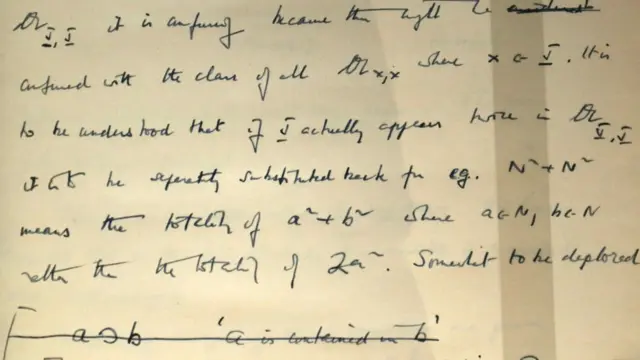 𝔄_V,V it is confusing because this might be
confused with the class of all 𝔄_x,x where x ∈ V. It is
to be understood that if V actually appears twice in 𝔄_V,V
it is to be separately substituted back for eg. N² + N²
means the totality of a² + b² where a ∈ N, b ∈ N
rather than the totality of 2a². Somewhat to be deplored
a ⊃ b 'a is contained in b'